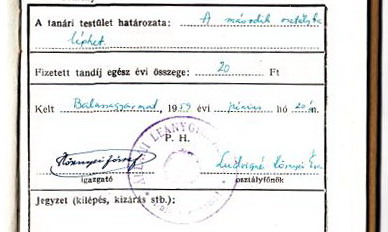 A tanári testület határozata: A második osztályba
léphet.
Fizetett tandíj egész évi összege: 20 Ft
Kelt Balassagyarmat, 1959 évi június hó 20-n.
P. H.
Környei József
igazgató
Ludvigné Környei Éva
osztályfőnök
LEÁNYGI
Jegyzet (kilépés, kizárás stb.):